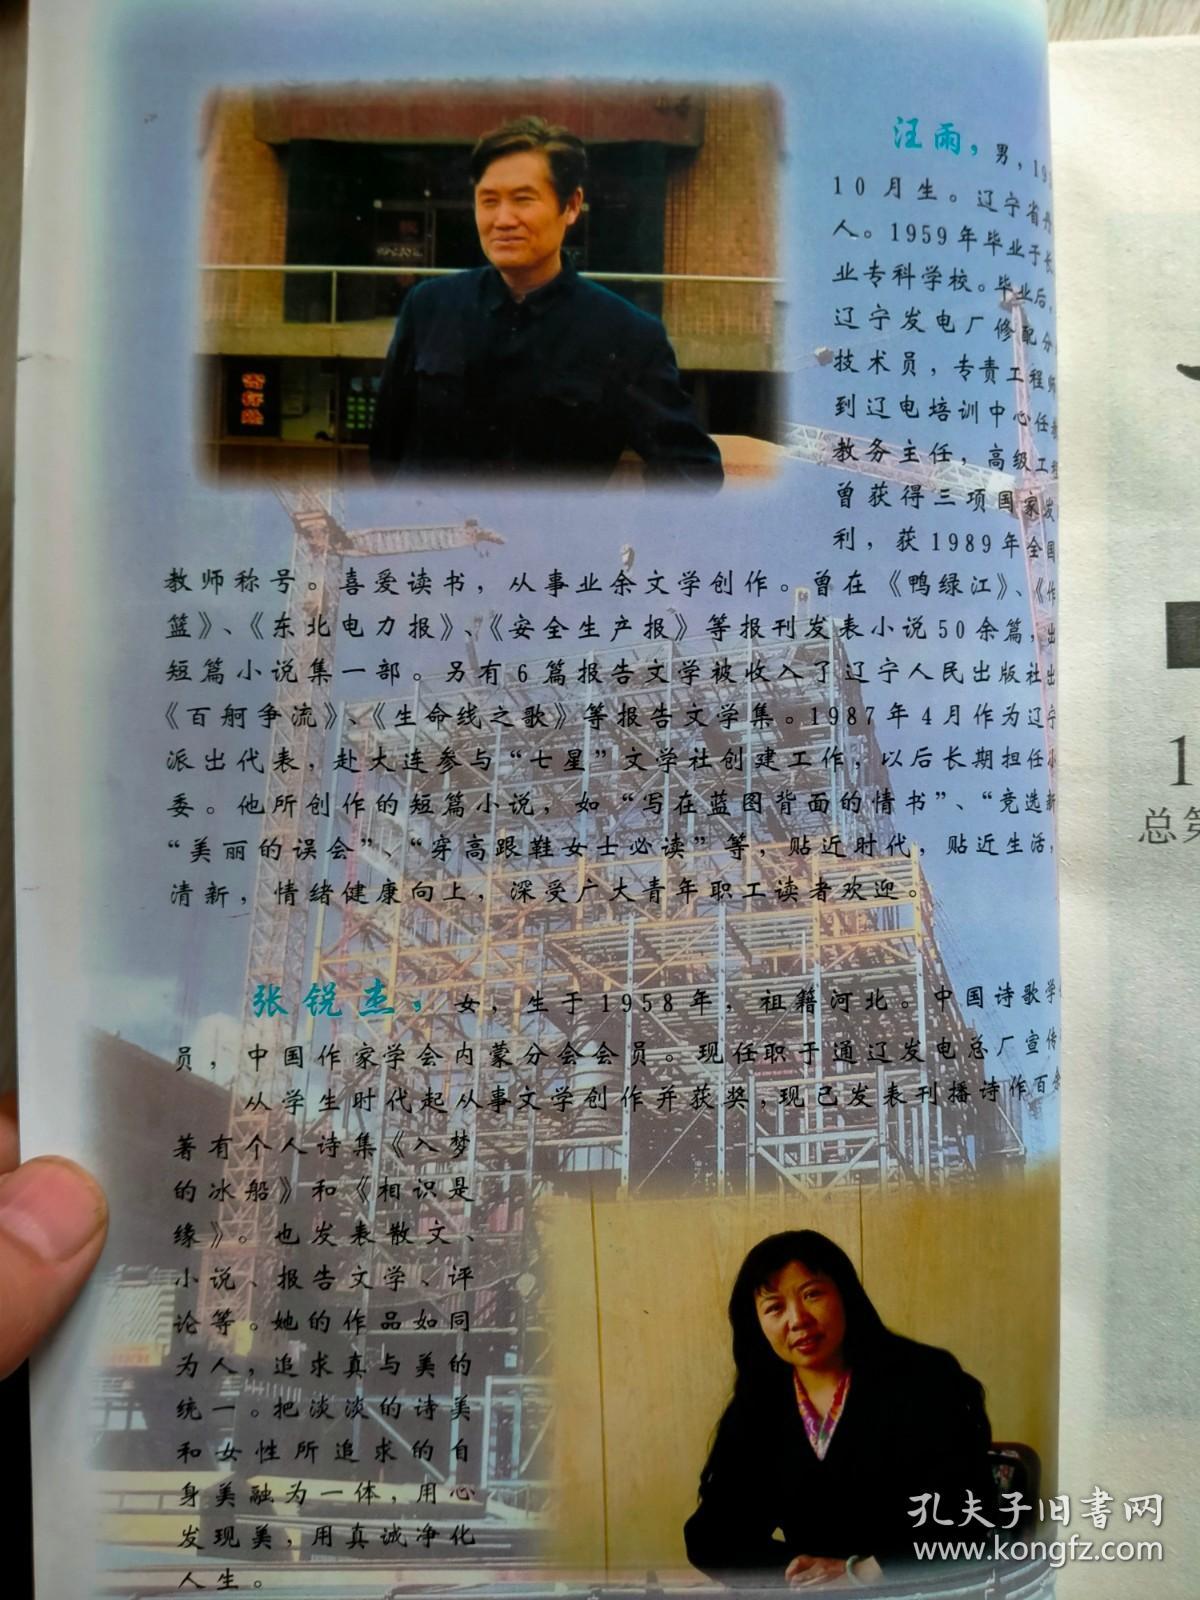 汪雨，男，19
10月生。辽宁省丹
人。1959年毕业于长
业专科学校。毕业后，
辽宁发电厂修配分
技术员，专责工程师
到辽电培训中心任教
教务主任，高级工程
曾获得三项国家发
利，获1989年全国
教师称号。喜爱读书，从事业余文学创作。曾在《鸭绿江》、《作
篮》、《东北电力报》、《安全生产报》等报刊发表小说50余篇，出
短篇小说集一部。另有6篇报告文学被收入了辽宁人民出版社出
《百舸争流》、《生命线之歌》等报告文学集。1987年4月作为辽宁
派出代表，赴大连参与“七星”文学社创建工作，以后长期担任小
委。他所创作的短篇小说，如“写在蓝图背面的情书”、“竞选新
“美丽的误会”、“穿高跟鞋女士必读”等，贴近时代，贴近生活，
清新，情绪健康向上，深受广大青年职工读者欢迎。
张锐杰，女，生于1958年，祖籍河北。中国诗歌学
员，中国作家学会内蒙分会会员。现任职于通辽发电总厂宣传
从学生时代起从事文学创作并获奖，现已发表刊播诗作百余
著有个人诗集《入梦
的冰船》和《相识是
缘》。也发表散文、
小说、报告文学、评
论等。她的作品如同
为人，追求真与美的
统一。把淡淡的诗美
和女性所追求的自
身美融为一体，用心
发现美，用真诚净化
人生。
1
总第
孔夫子旧书网
www.kongfz.com